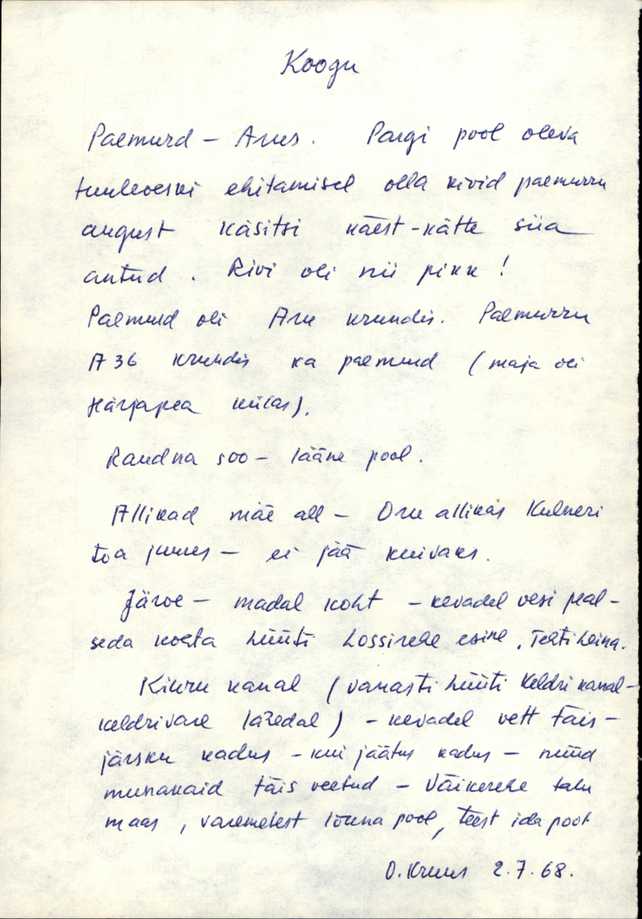 Koogu
Paemurd - Arus. Pargi pool oleva
tuuleveski ehitamisel olla kivid paemurru
august käsitsi käest-kätte siia
antud. Rivi oli nii pikk!
Paemurd oli Aru krundis. Paemurru
A 36 krundis ka paemurd (maja oli
Härjapea külas).
Raudna soo - lääne pool.
Allikad mäe all - Oru allikas Kulneri
toa juures - ei jää kuivaks.
Järve - madal koht - kevadel vesi peal -
seda kohta hüüti Lossirehe esine, Tehti heina.
Kikru kanal (vanasti hüüti Keldri kanal -
keldrivare lähedal) - kevadel vett täis -
järsku kadus - kui jäätus kadus - nüüd
munakaid täis veetud - Väikerehe talu
maas, varemetest lõuna pool, teest ida pool
O. Kruus 2.7.68.